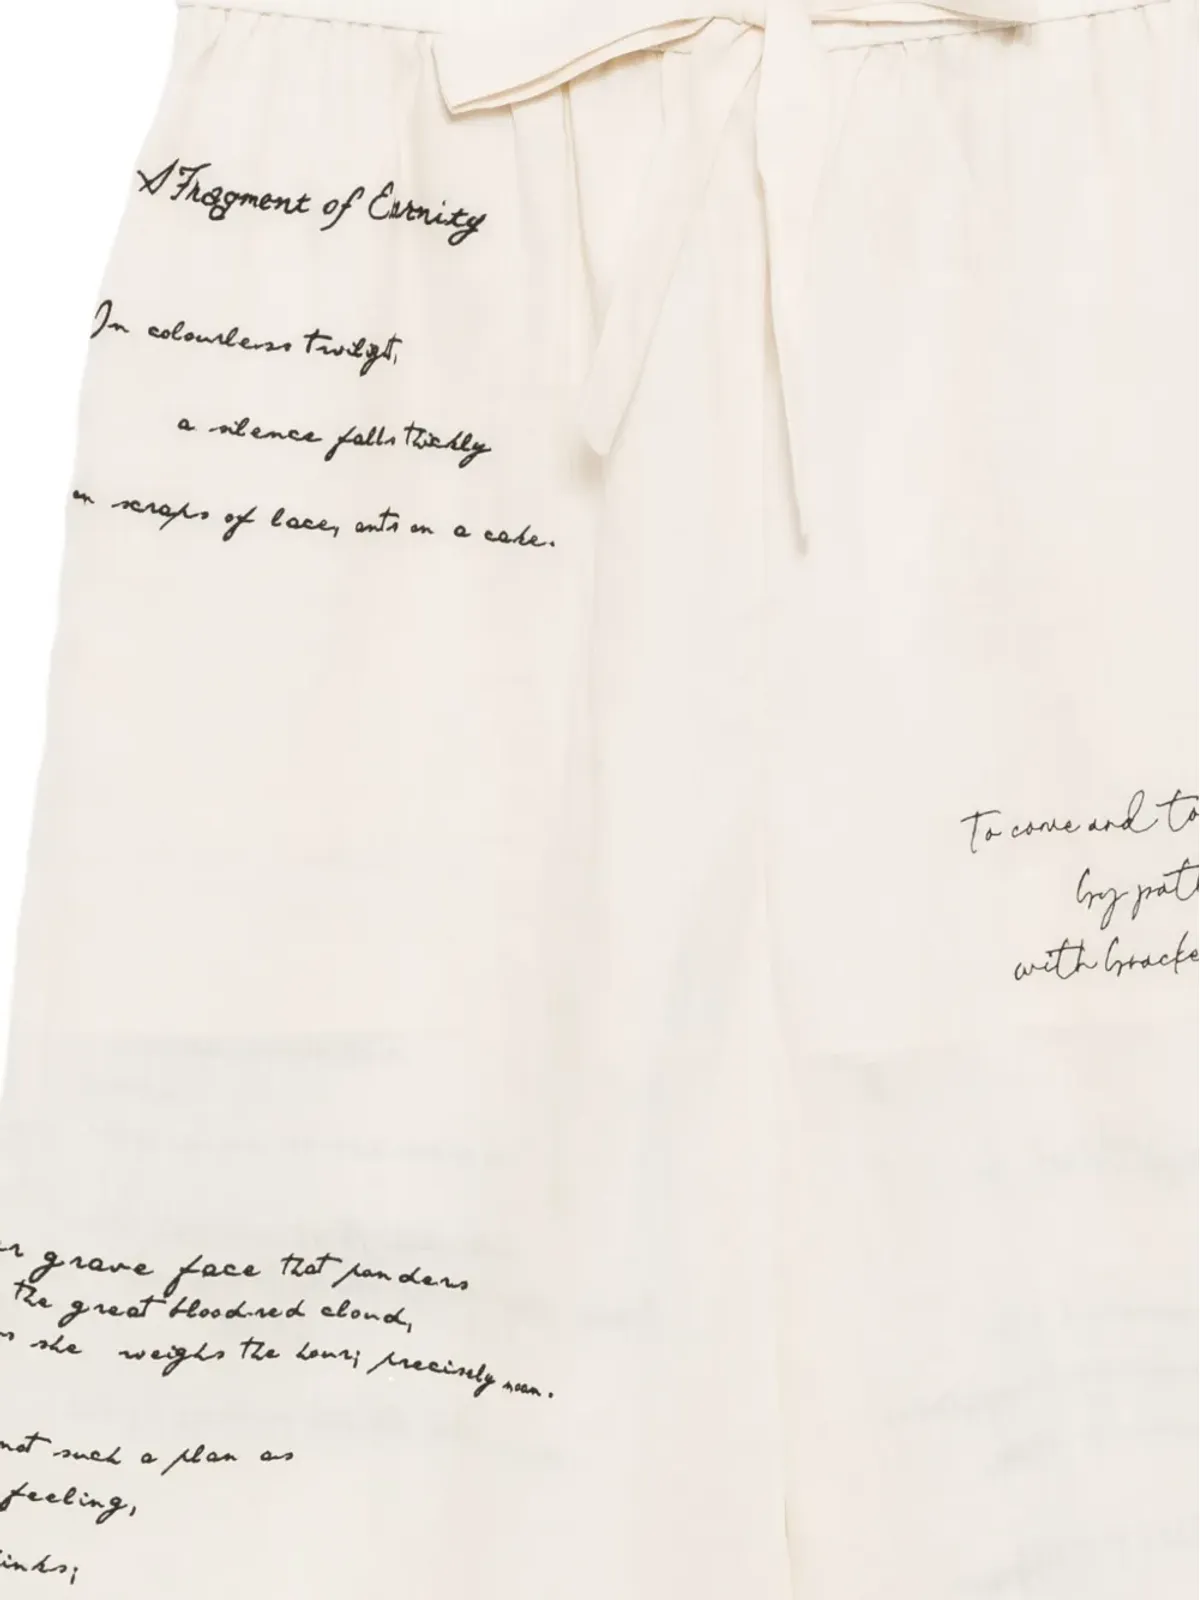 A Fragment of Eternity
In colourless twilight,
a silence falls thickly
on scraps of lace, ants on a cake.
To come and to
by path
with bracke
er grave face that ponders
the great blood-red cloud,
as she weighs the hour; precisely noon.
not such a plan as
feeling,
inks;